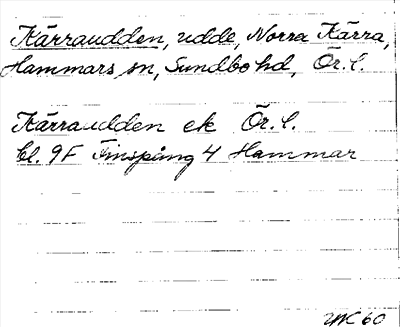 Kärraudden, udde, Norra Kärra,
Hammars sn, Sundbo hd, Ör. l.
Kärraudden ek Ör. l.
bl. 9F Finspång 4 Hammar
60